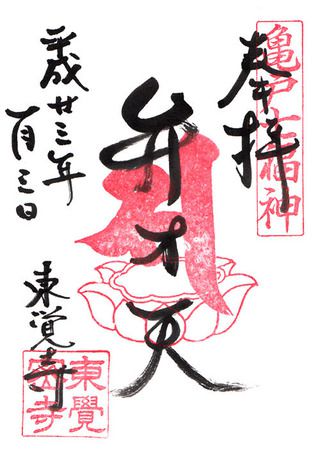 奉拝
亀戸七福神
弁才天
平成廿三年
一月三日
東覚寺
東覺
密寺